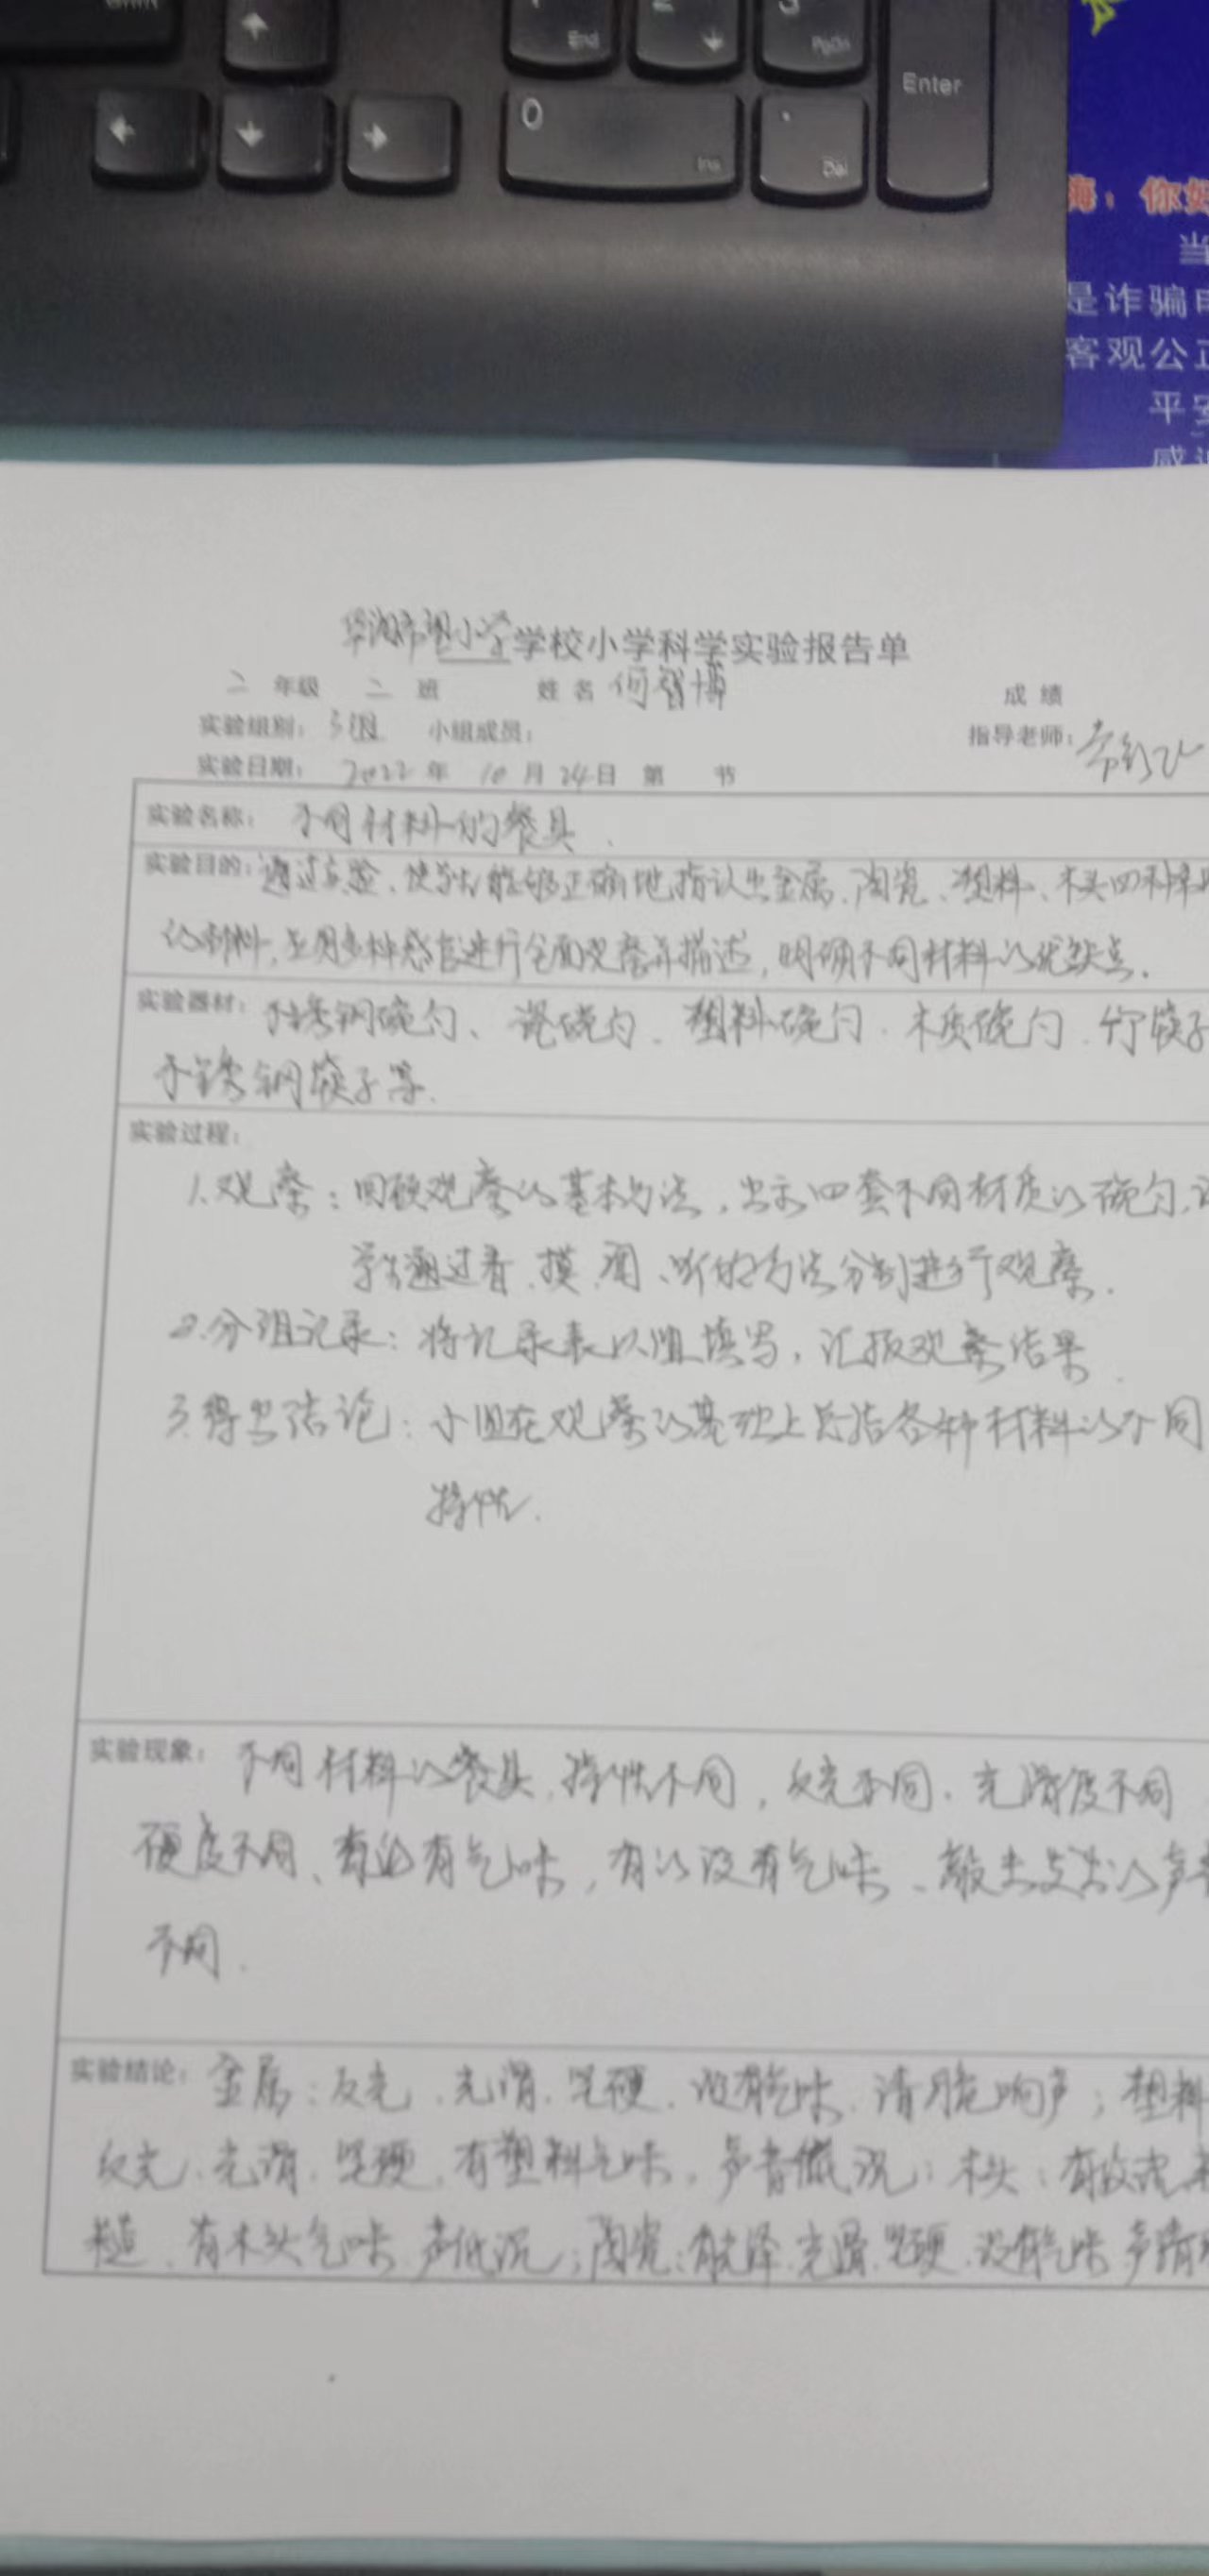 1
End
2
3
PgDn
Enter
0
Ins
.
Del
海：你好
当
是诈骗电
客观公正
平安
感谢
小学学校小学科学实验报告单
二 年级 二 班 姓名 何智博 成绩
实验组别： 3组 小组成员： 指导老师：
实验日期： 2022 年 10 月 24 日 第 节
实验名称： 不同材料的餐具
实验目的：通过实验、使学生能够正确地指认出金属、陶瓷、塑料、木头四种常见
的材料，运用多种感官进行全面观察并描述，明确不同材料的优缺点.
实验器材： 不锈钢碗勺、瓷碗勺、塑料碗勺、木质碗勺、竹筷子
不锈钢筷子等.
实验过程：
1.观察：回顾观察的基本方法，出示四套不同材质的碗勺，让
学生通过看、摸、闻、听的方法分别进行观察.
2.分组记录：将记录表以组填写，汇报观察结果.
3.得出结论：小组在观察的基础上总结各种材料的不同
特性.
实验现象： 不同材料的餐具，特性不同，反光不同、光滑度不同
硬度不同、有的有气味，有的没有气味、敲击发出的声音
不同.
实验结论： 金属：反光、光滑、坚硬、没有气味、清脆响声；塑料
反光、光滑、坚硬、有塑料气味，声音低沉；木头：有纹理
糙、有木头气味、声低沉；陶瓷：有光泽、光滑、坚硬、没有气味 声清